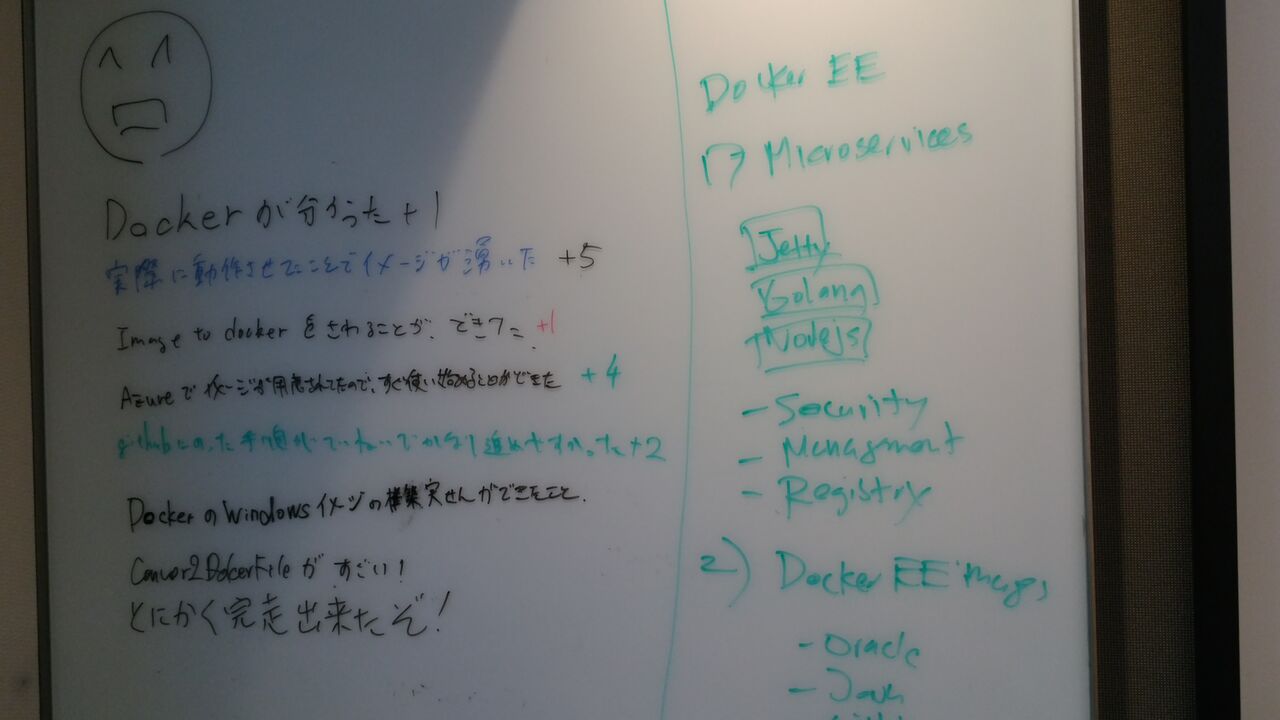 Dockerが分かった +1
実際に動作させたことでイメージが湧いた +5
Image to docker をさわることが、できた +1
Azureでイメージが用意されてたので、すぐ使い始めることができた +4
githubにのった手順がていねいでかなり進めやすかった +2
DockerのWindowsイメージの構築実せんができたこと.
がすごい!
とにかく完走出来たぞ!
Docker EE
Microservices
Jetty
Golang
Nodejs
- Security
- Managment
- Registry
2) Docker EE
- Oracle
- Java